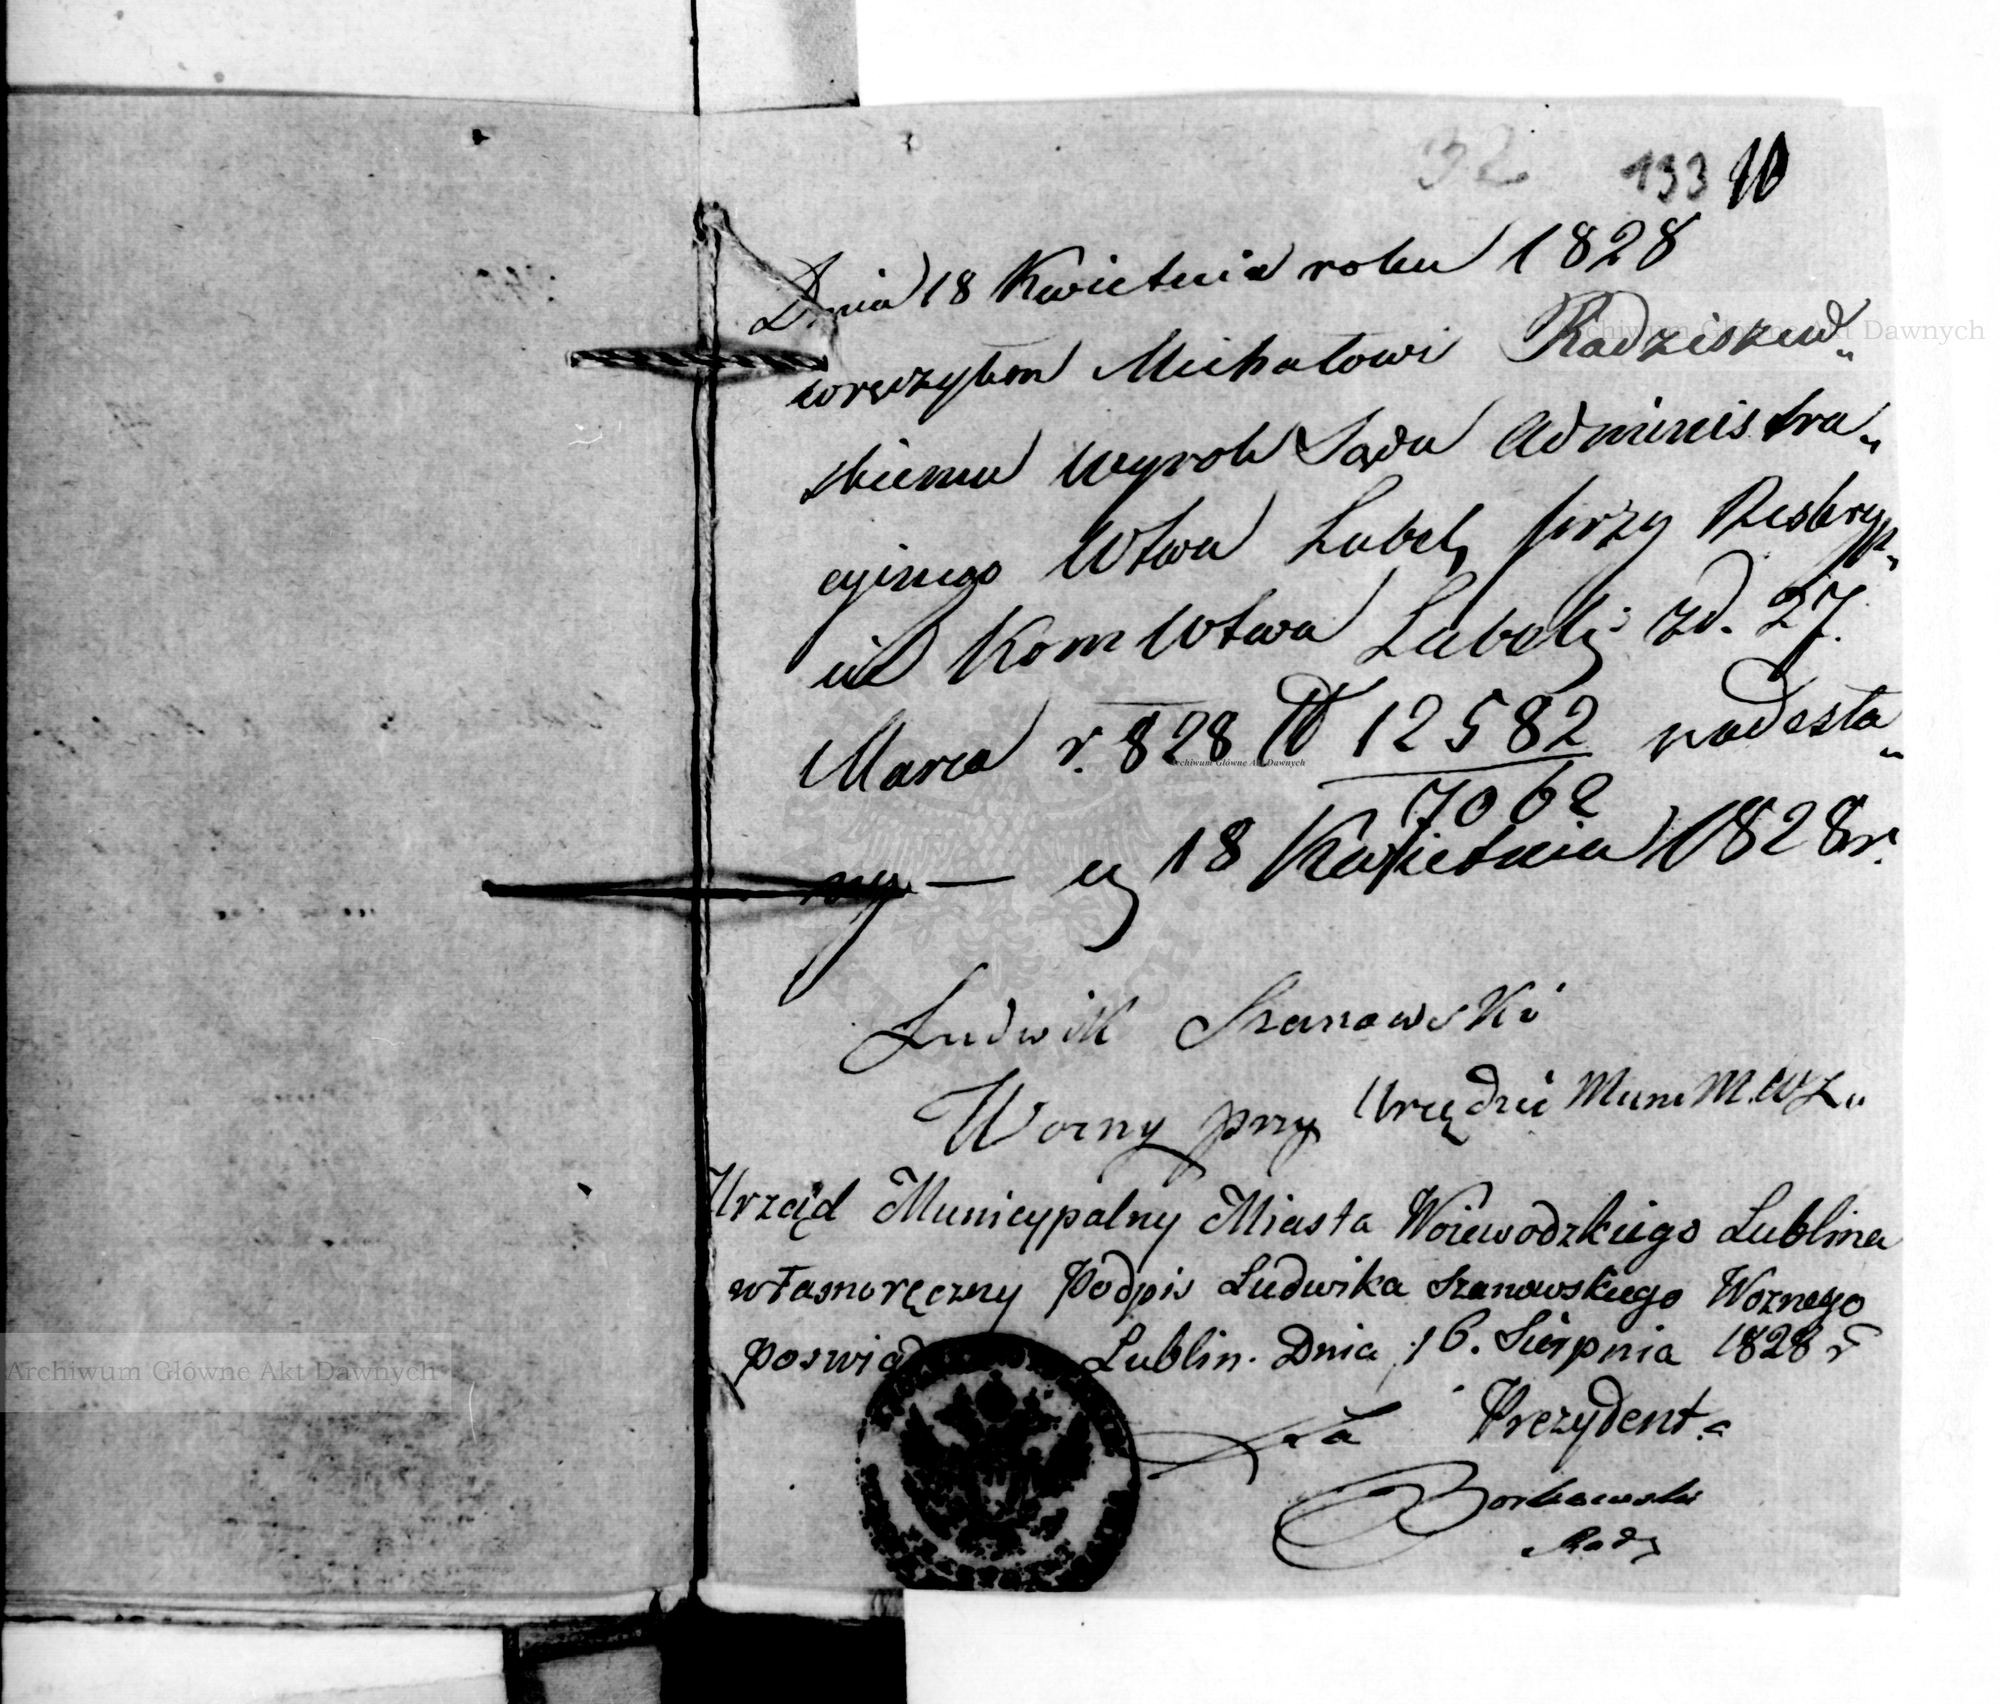 32 193
Dnia 18 Kwietnia roku 1828
wręczyłem Michałowi Radziszew„
skiemu Wyrok Sądu Administra„
cyinego Wtwa Lubel, przy Reskryp„
cie Kom Wtwa Lubel: zd. 27.
Marca r. 828 N 12582 nadesła„
7062
ny — 18 Kwietnia 1828 r.
Ludwik Szanowski
Wozny przy Urzędzie Muni M.W.L.
Urząd Municypalny Miasta Woiewodzkiego Lublina
własnoręczny Podpis Ludwika Szanowskiego Woznego
poswiad Lublin. Dnia 16. Sierpnia 1828 r
za Prezydenta
Borkowski
Radz
Archiwum Główne Akt Dawnych
Archiwum Główne Akt Dawnych
Archiwum Główne Akt Dawnych